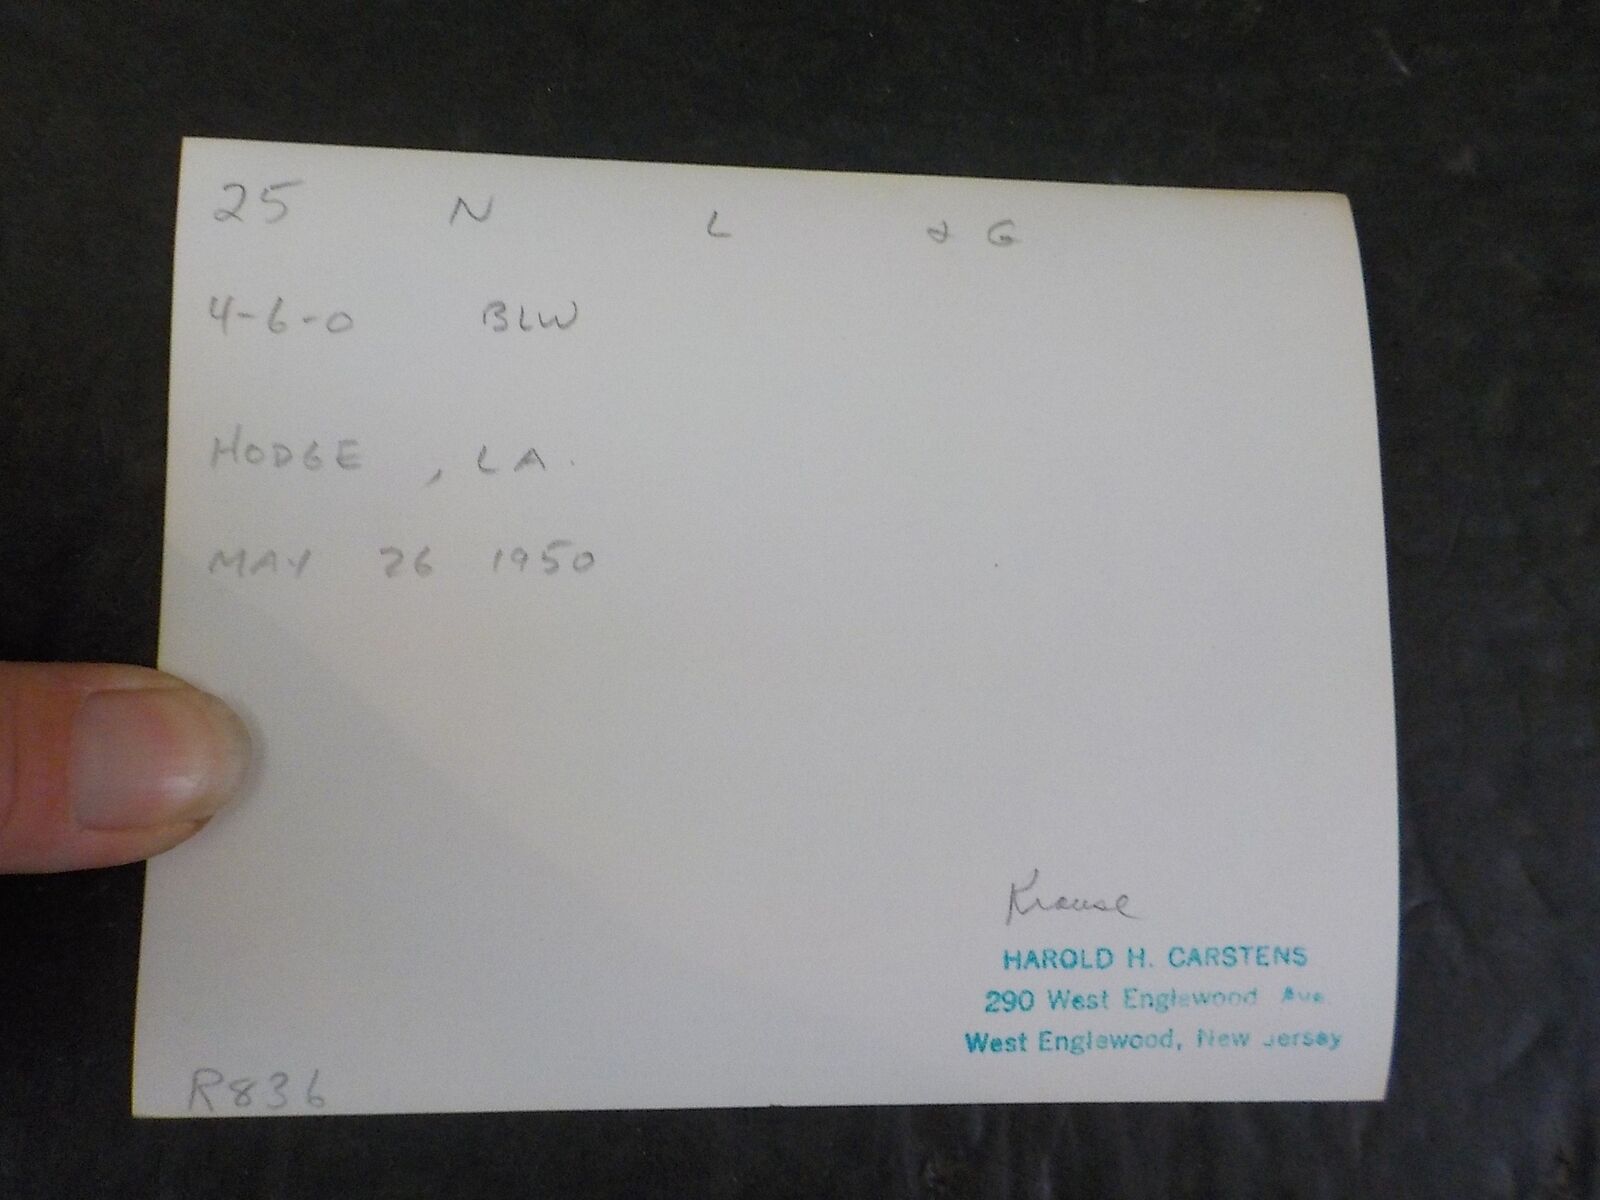 25 N L & G
4-6-0 BLW
HODGE, LA.
MAY 26 1950
Krause
HAROLD H. CARSTENS
290 West Englewood Ave.
West Englewood, New Jersey
R836